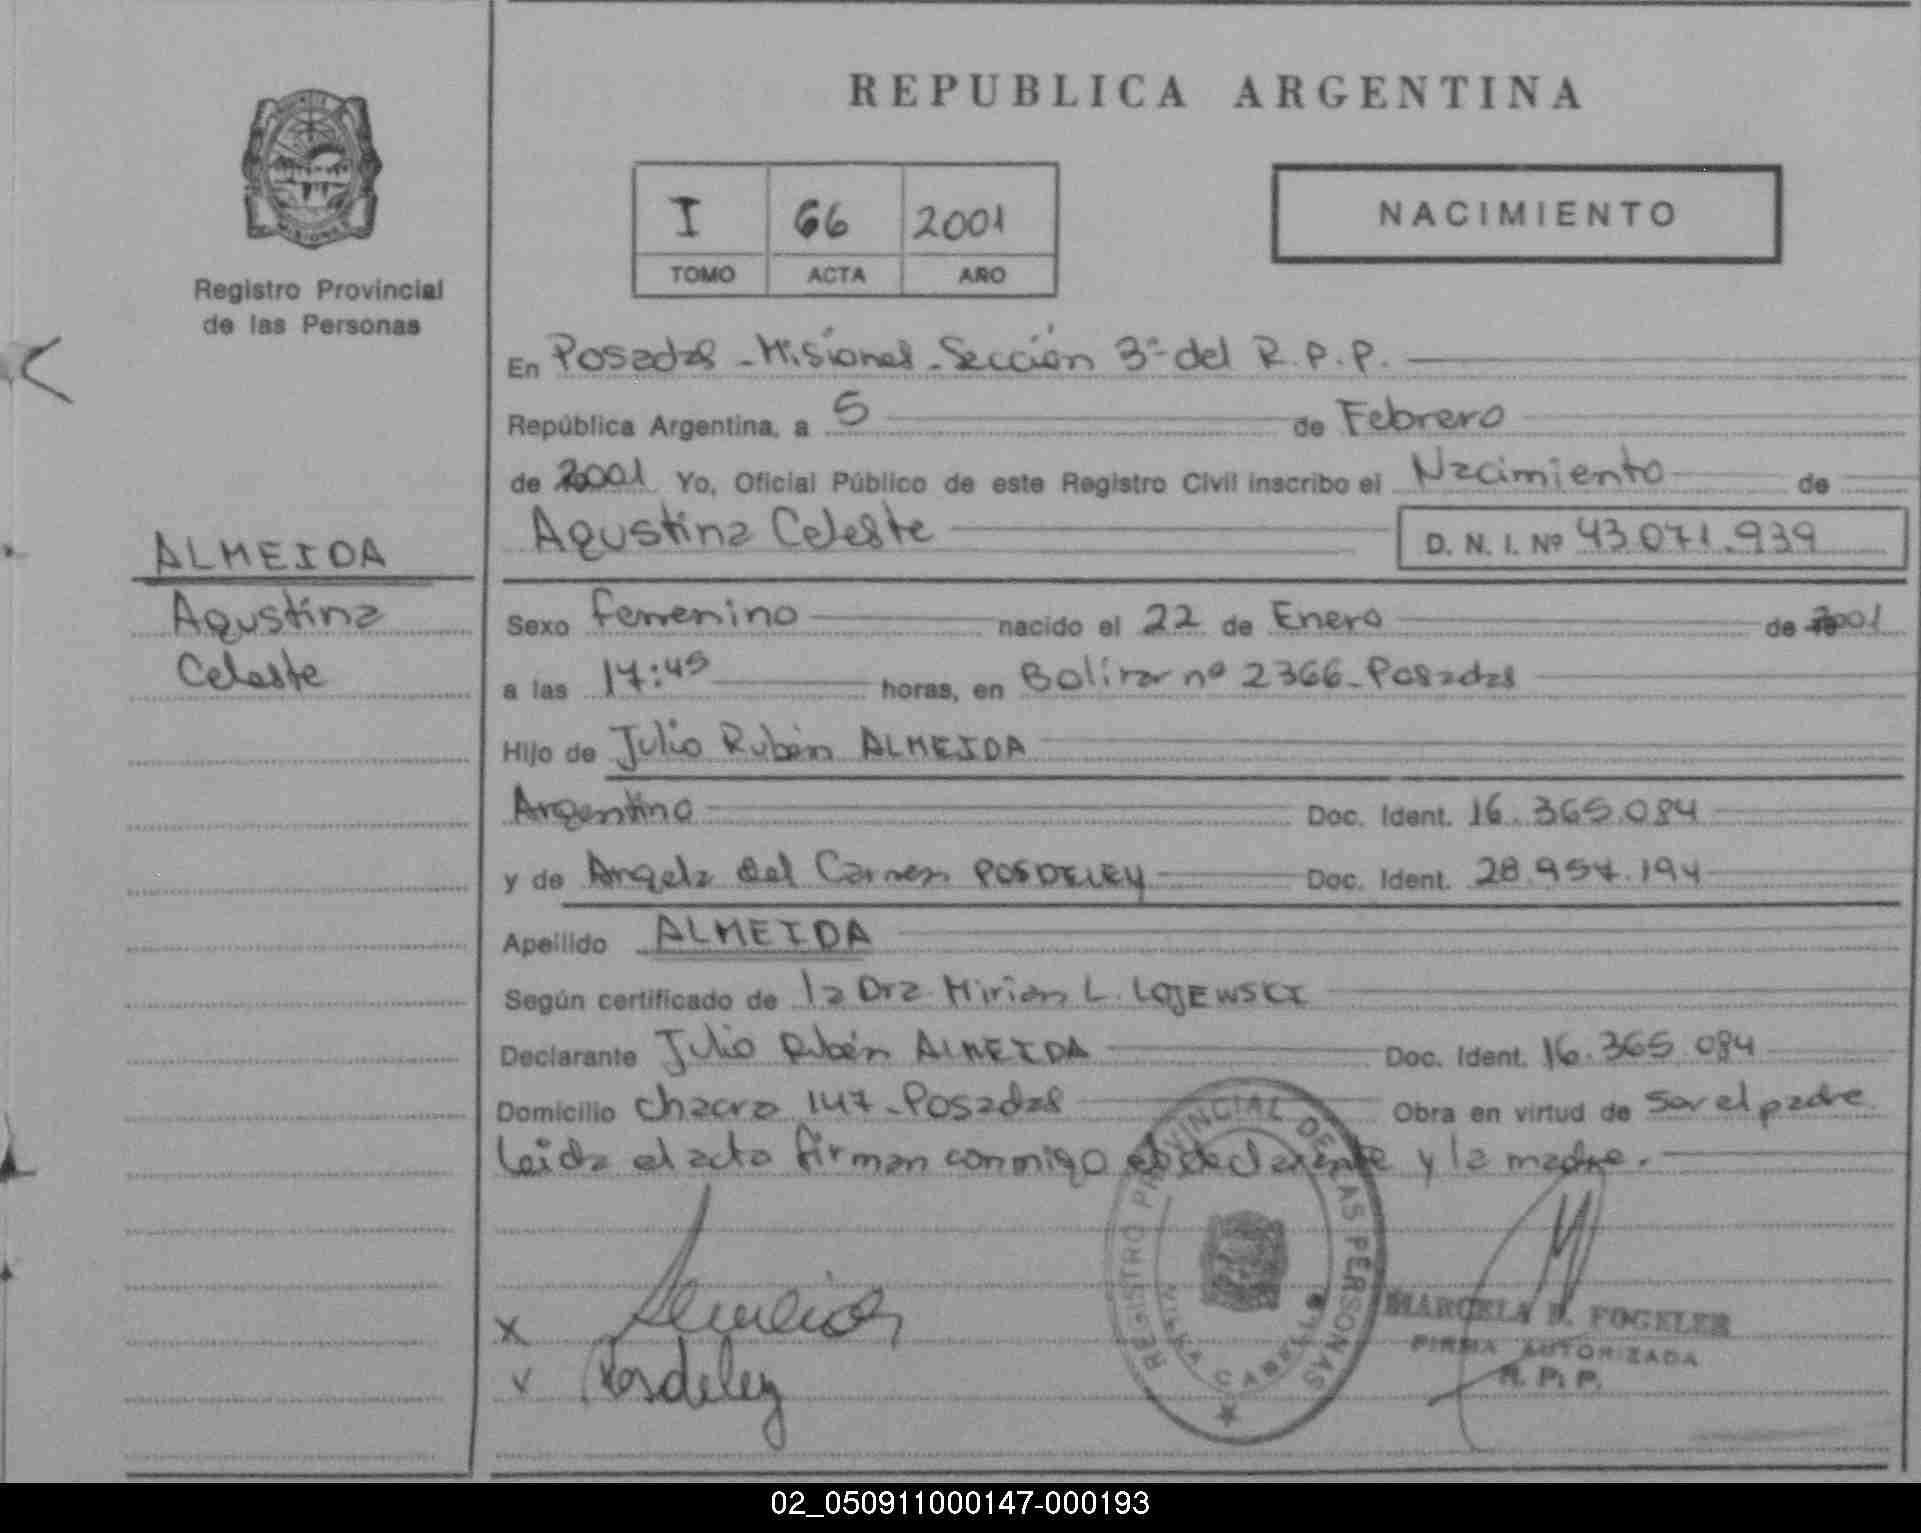 REPUBLICA ARGENTINA
MISIONES
Registro Provincial
de las Personas
I 66 2001
TOMO ACTA AÑO
NACIMIENTO
En Posadas - Misiones - Sección 3ª del R.P.P.
República Argentina, a 5 de Febrero
de 2001 Yo, Oficial Público de este Registro Civil inscribo el Nacimiento de
Agustina Celeste D. N. I. Nº 43.071.939
ALMEIDA
Agustina
Celeste
Sexo femenino nacido el 22 de Enero de 2001
a las 17:45 horas, en Bolívar nº 2366 - Posadas
Hijo de Julio Rubén ALMEIDA
Argentino Doc. Ident. 16.365.084
y de Angela del Carmen POSDELEY Doc. Ident. 28.957.194
Apellido ALMEIDA
Según certificado de la Dra Mirian L. LOJEWSKI
Declarante Julio Rubén ALMEIDA Doc. Ident. 16.365.084
Domicilio Chacra 147 - Posadas Obra en virtud de ser el padre
Leida el acta firman conmigo el declarante y la madre.
REGISTRO PROVINCIAL DE LAS PERSONAS
CABRED
X Almeida
X Posdeley
MARCELA B. FOGELER
FIRMA AUTORIZADA
R. P. P.
02_050911000147-000193